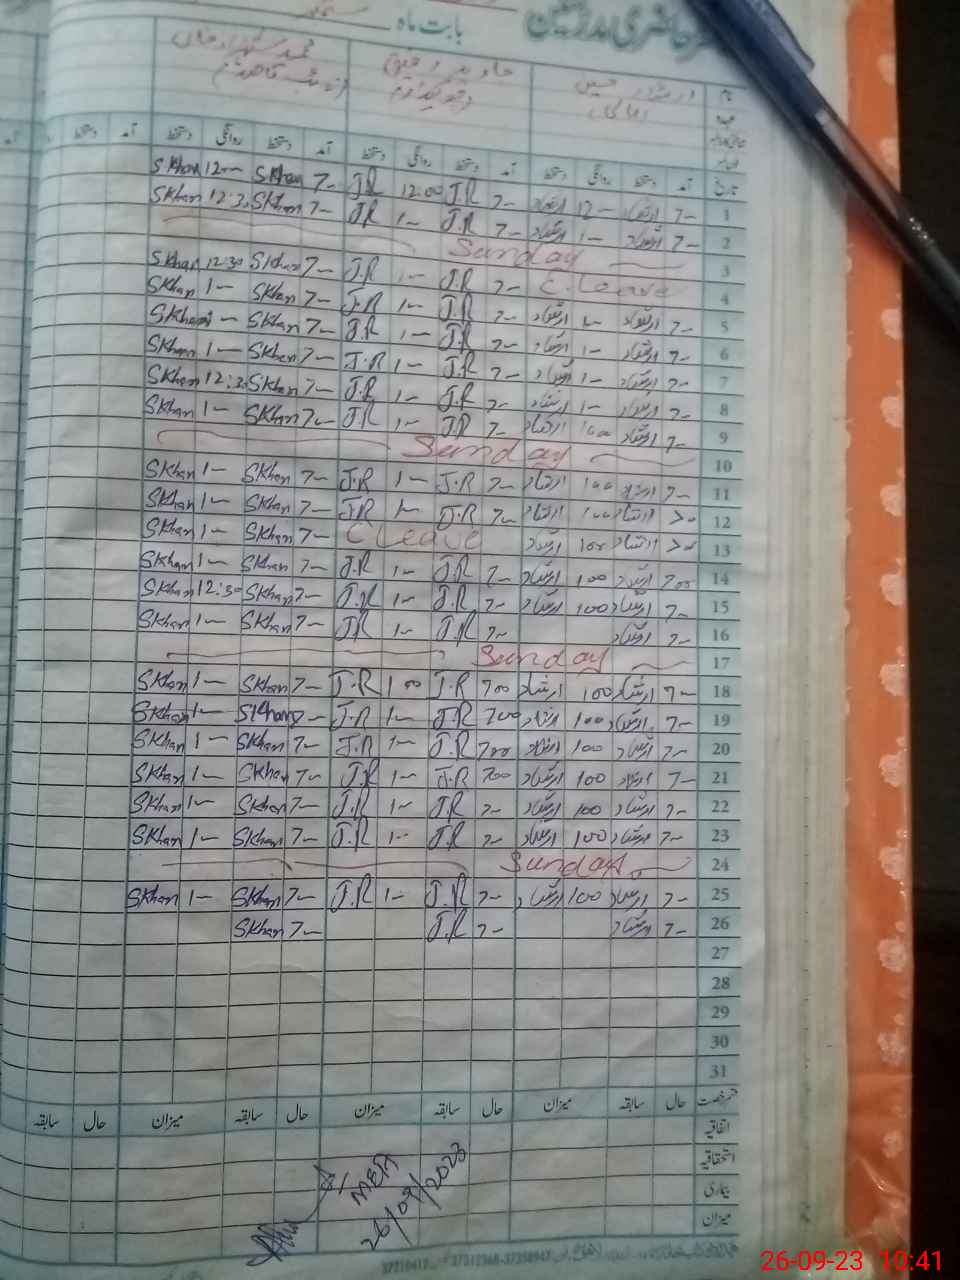 حاضری مدرسین بابت ماہ
نام ارشاد حسین
عہدہ
تاریخ آمد دستخط روانگی دستخط آمد دستخط روانگی دستخط آمد دستخط روانگی دستخط آمد دستخط
1 7- ارشاد 12- ارشاد 7- J.R 12:00 J.R 7- SKhan 12- SKhan
2 7- ارشاد 1- ارشاد 7- J.R 1- J.R 7- SKhan 12:3 SKhan
3 Sunday
4 C.leave 7- J.R 1- J.R 7- SKhan 12:30 SKhan
5 7- ارشاد 1- ارشاد 7- J.R 1- J.R 7- SKhan 1- SKhan
6 7- ارشاد 1- ارشاد 7- J.R 1- J.R 7- SKhan 1- SKhan
7 7- ارشاد 1- ارشاد 7- J.R 1- J.R 7- SKhan 1- SKhan
8 7- ارشاد 1- ارشاد 7- J.R 1- J.R 7- SKhan 12:3 SKhan
9 7- ارشاد 100 ارشاد 7- J.R 1- J.R 7- SKhan 1- SKhan
10 Sunday
11 7- ارشاد 100 ارشاد 7- J.R 1- J.R 7- SKhan 1- SKhan
12 ارشاد 100 ارشاد 7- J.R 1- J.R 7- SKhan 1- SKhan
13 ارشاد 100 ارشاد C leave 7- SKhan 1- SKhan
14 700 ارشاد 100 ارشاد 7- J.R 1- J.R 7- SKhan 1- SKhan
15 7- ارشاد 100 ارشاد 7- J.R 1- J.R 7- SKhan 12:30 SKhan
16 7- ارشاد 7- J.R 1- J.R 7- SKhan 1- SKhan
17 Sunday
18 7- ارشاد 100 ارشاد 700 J.R 100 J.R 7- SKhan 1- SKhan
19 7- ارشاد 100 ارشاد 700 J.R 1- J.R 7- SKhan 1- SKhan
20 7- ارشاد 100 ارشاد 700 J.R 1- J.R 7- SKhan 1- SKhan
21 7- ارشاد 100 ارشاد 700 J.R 1- J.R 7- SKhan 1- SKhan
22 7- ارشاد 100 ارشاد 7- J.R 1- J.R 7- SKhan 1- SKhan
23 7- ارشاد 100 ارشاد 7- J.R 1- J.R 7- SKhan 1- SKhan
24 Sunday
25 7- ارشاد 100 ارشاد 7- J.R 1- J.R 7- SKhan 1- SKhan
26 7- ارشاد 7- J.R 7- SKhan
27
28
29
30
31
رخصت حال سابقہ میزان حال سابقہ میزان حال سابقہ میزان حال سابقہ
اتفاقیہ
استحقاقیہ
بیماری
میزان
MEA
26/09/2023
26-09-23 10:41